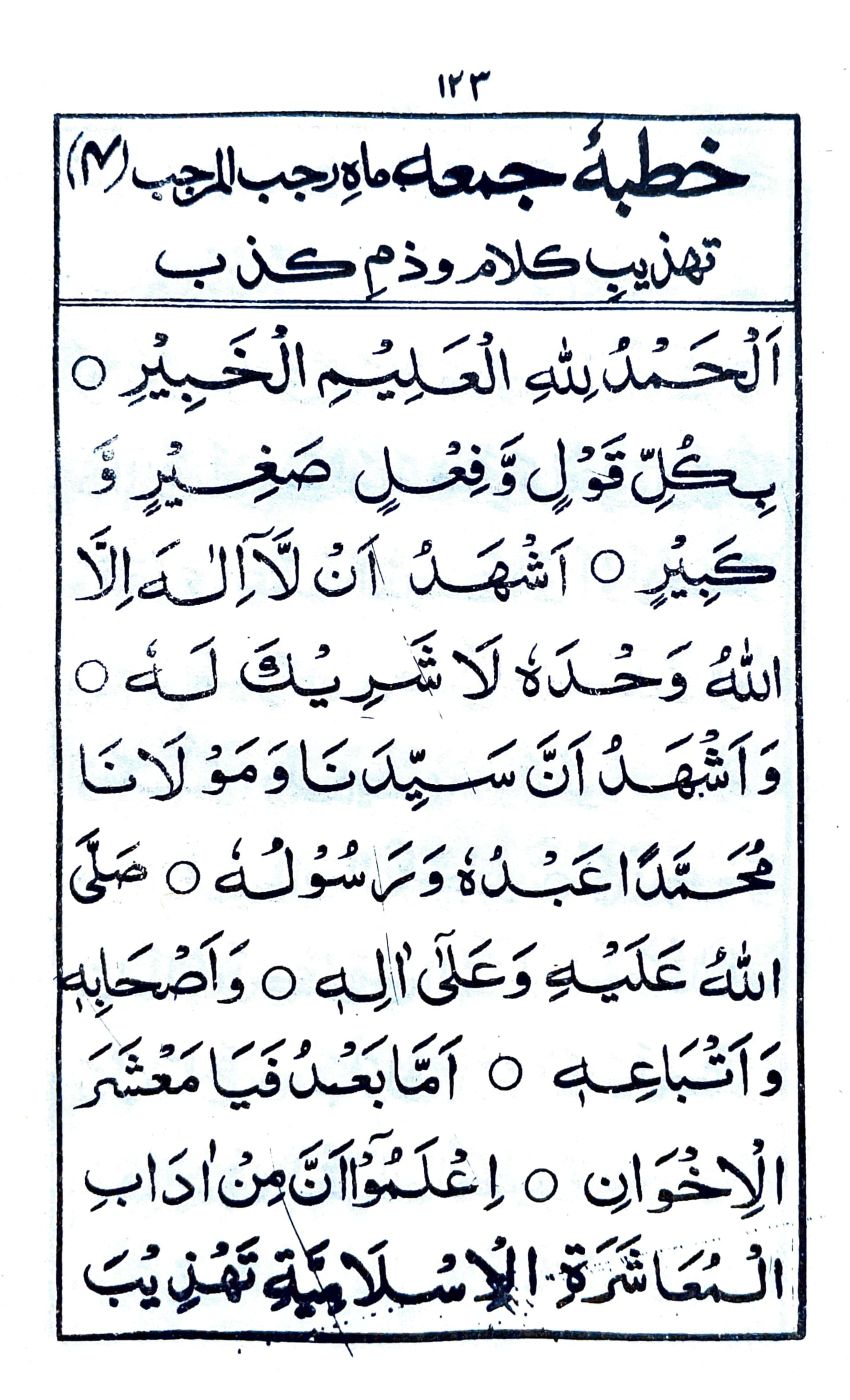 ۱۲۳
خطبۂ جمعہ ماہِ رجب المرجب (۴)
تهذیبِ کلام و ذمِ کذب
اَلْحَمْدُ لِلّٰهِ الْعَلِيْمِ الْخَبِيْرِ ○
بِكُلِّ قَوْلٍ وَّفِعْلٍ صَغِيْرٍ وَّ
كَبِيْرٍ ○ اَشْهَدُ اَنْ لَّآ اِلٰهَ اِلَّا
اللّٰهُ وَحْدَهٗ لَا شَرِيْكَ لَهٗ ○
وَاَشْهَدُ اَنَّ سَيِّدَنَا وَمَوْلَانَا
مُحَمَّدًا عَبْدُهٗ وَرَسُوْلُهٗ ○ صَلَّى
اللّٰهُ عَلَيْهِ وَعَلٰٓى اٰلِهٖ ○ وَاَصْحَابِهٖ
وَاَتْبَاعِهٖ ○ اَمَّا بَعْدُ فَيَا مَعْشَرَ
الْاِخْوَانِ ○ اِعْلَمُوْٓا اَنَّ مِنْ اٰدَابِ
الْمُعَاشَرَةِ الْاِسْلَامِيَّةِ تَهْذِيْبَ